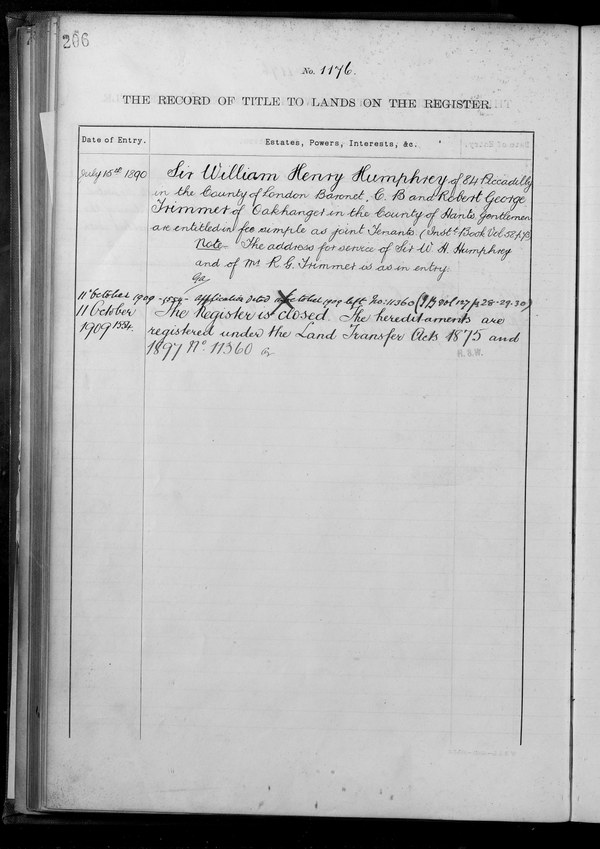 206
No. 1176.
THE RECORD OF TITLE TO LANDS ON THE REGISTER.
Date of Entry. Estates, Powers, Interests, &c.
July 15th 1890 Sir William Henry Humphrey of 84 Piccadilly
in the County of London Baronet, C. B and Robert George
Trimmer of Oakhanger in the County of Hants Gentlemen
are entitled in fee simple as joint Tenants. (Inst. Book Vol 52
Note The address for service of Sir W. H. Humphrey
and of Mr R. G. Trimmer is as in entry.
11 October 1909 Application dated October 1909 left No: 11360 28-29-30)
11 October The Register is closed. The hereditaments are
1909 1554. registered under the Land Transfer Acts 1875 and
1897 No 11360
H. S. W.